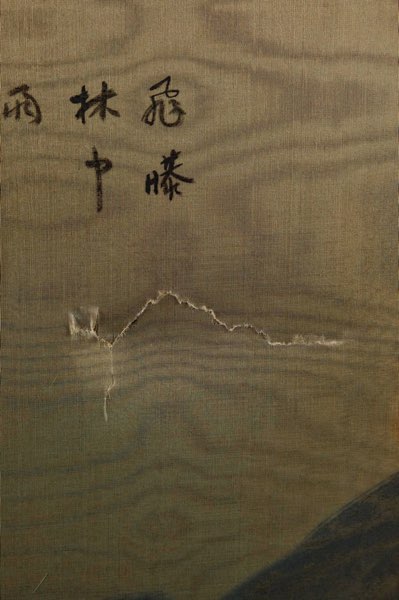 飛滕
林中
雨